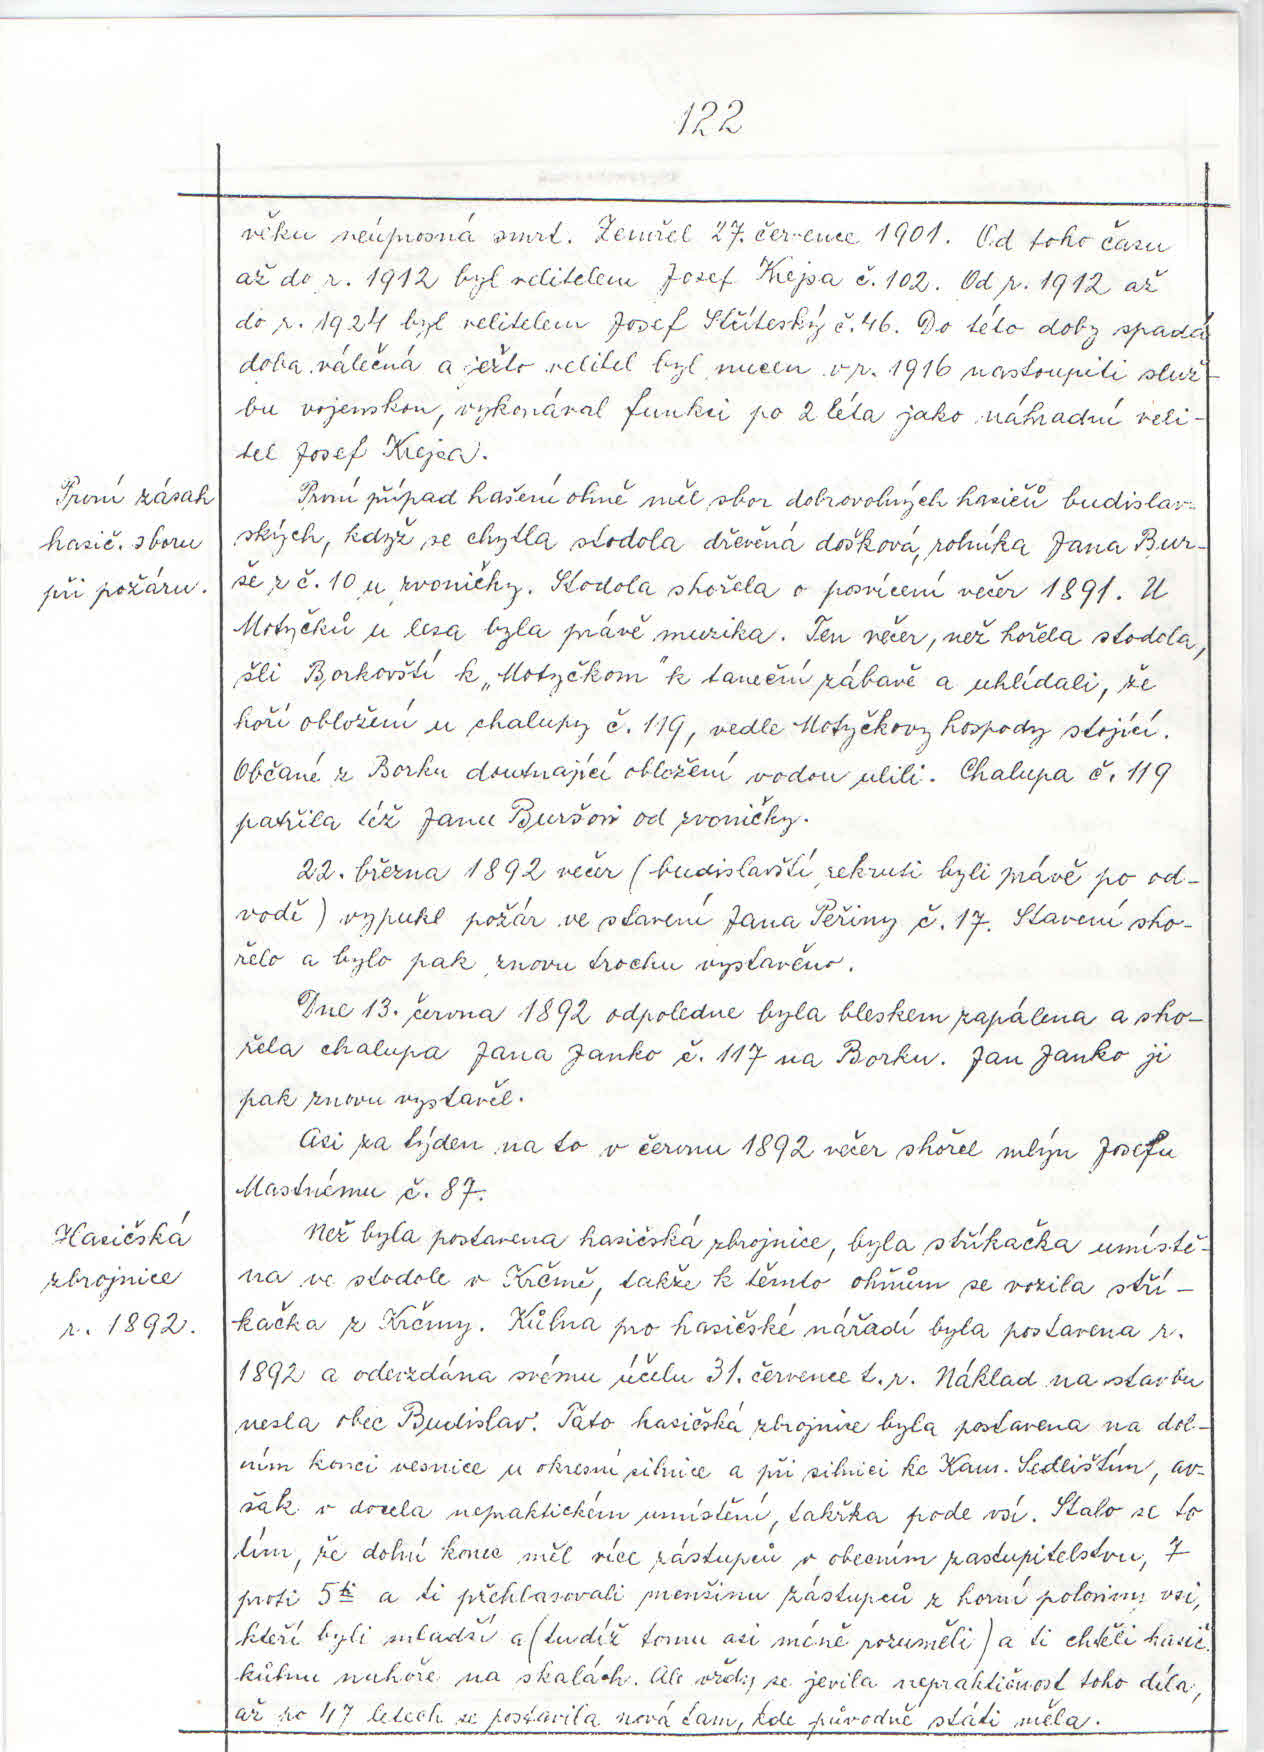 122
věku neúprosná smrt. Zemřel 27. července 1901. Od toho času
až do r. 1912 byl velitelem Josef Krejsa č. 102. Od r. 1912 až
do r. 1924 byl velitelem Josef Stříteský č. 46. Do této doby spadá
doba válečná a ježto velitel byl nucen v r. 1916 nastoupiti služ-
bu vojenskou, vykonával funkci po 2 léta jako náhradní veli-
tel Josef Krejsa.
První zásah
hasič. sboru
při požáru.
První případ hašení ohně měl sbor dobrovolných hasičů budislav-
ských, když se chytla stodola dřevěná došková, rolníka Jana Bur-
še z č. 10 u zvoničky. Stodola shořela o posvícení večer 1891. U
Motyčků u lesa byla právě muzika. Ten večer, než hořela stodola,
šli Borkovští k „Motyčkom" k taneční zábavě a uhlídali, že
hoří obložení u chalupy č. 119, vedle Motyčkovy hospody stojící.
Občané z Borku doutnající obložení vodou ulili. Chalupa č. 119
patřila též Janu Buršovi od zvoničky.
22. března 1892 večer (budislavští rekruti byli právě po od-
vodě) vypukl požár ve stavení Jana Peřiny č. 17. Stavení sho-
řelo a bylo pak znovu trochu vystavěno.
Dne 13. června 1892 odpoledne byla bleskem zapálena a sho-
řela chalupa Jana Janko č. 117 na Borku. Jan Janko ji
pak znovu vystavěl.
Asi za týden na to v červnu 1892 večer shořel mlýn Josefu
Mastnému č. 87.
Hasičská
zbrojnice
r. 1892.
Než byla postavena hasičská zbrojnice, byla stříkačka umístě-
na ve stodole v Krčmě, takže k těmto ohňům se vozila stří-
kačka z Krčmy. Kůlna pro hasičské nářadí byla postavena r.
1892 a odevzdána svému účelu 31. července t. r. Náklad na stavbu
nesla obec Budislav. Tato hasičská zbrojnice byla postavena na dol-
ním konci vesnice u okresní silnice a při silnici ke Kam. Sedlištím, av-
šak v docela nepraktickém umístění, takřka pode vsí. Stalo se to
tím, že dolní konec měl více zástupců v obecním zastupitelstvu, 7
proti 5ti a ti přehlasovali menšinu zástupců z horní poloviny vsi,
kteří byli mladší a (tudíž tomu asi méně rozuměli) a ti chtěli hasič.
kůlnu nahoře na skalách. Ale vždy se jevila nepraktičnost toho díla,
až po 47 letech se postavila nová tam, kde původně státi měla.